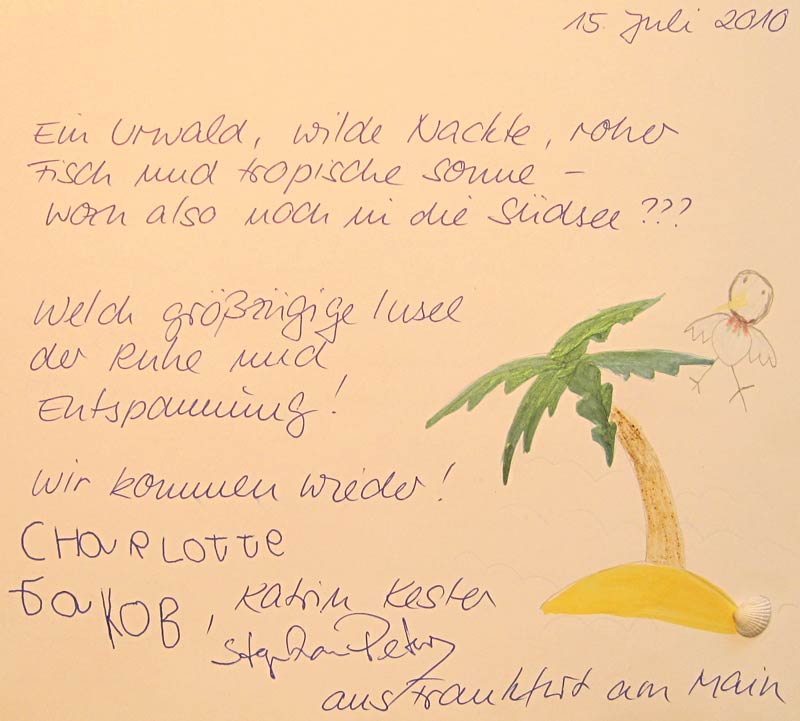 15. Juli 2010
Ein Urwald, wilde Nackte, roher
Fisch und tropische Sonne –
wozu also noch in die Südsee ???
Welch großzügige Insel
der Ruhe und
Entspannung!
Wir kommen wieder!
CHaRLOTTe
JaKOB, Katrin Kester
Stephan
aus Frankfurt am Main